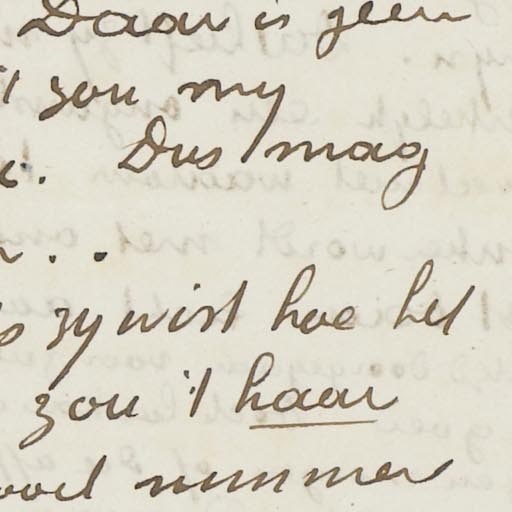 Daar is geen
't zou my
Dus mag
. .
zy wist hoe het
zou 't haar
nummer